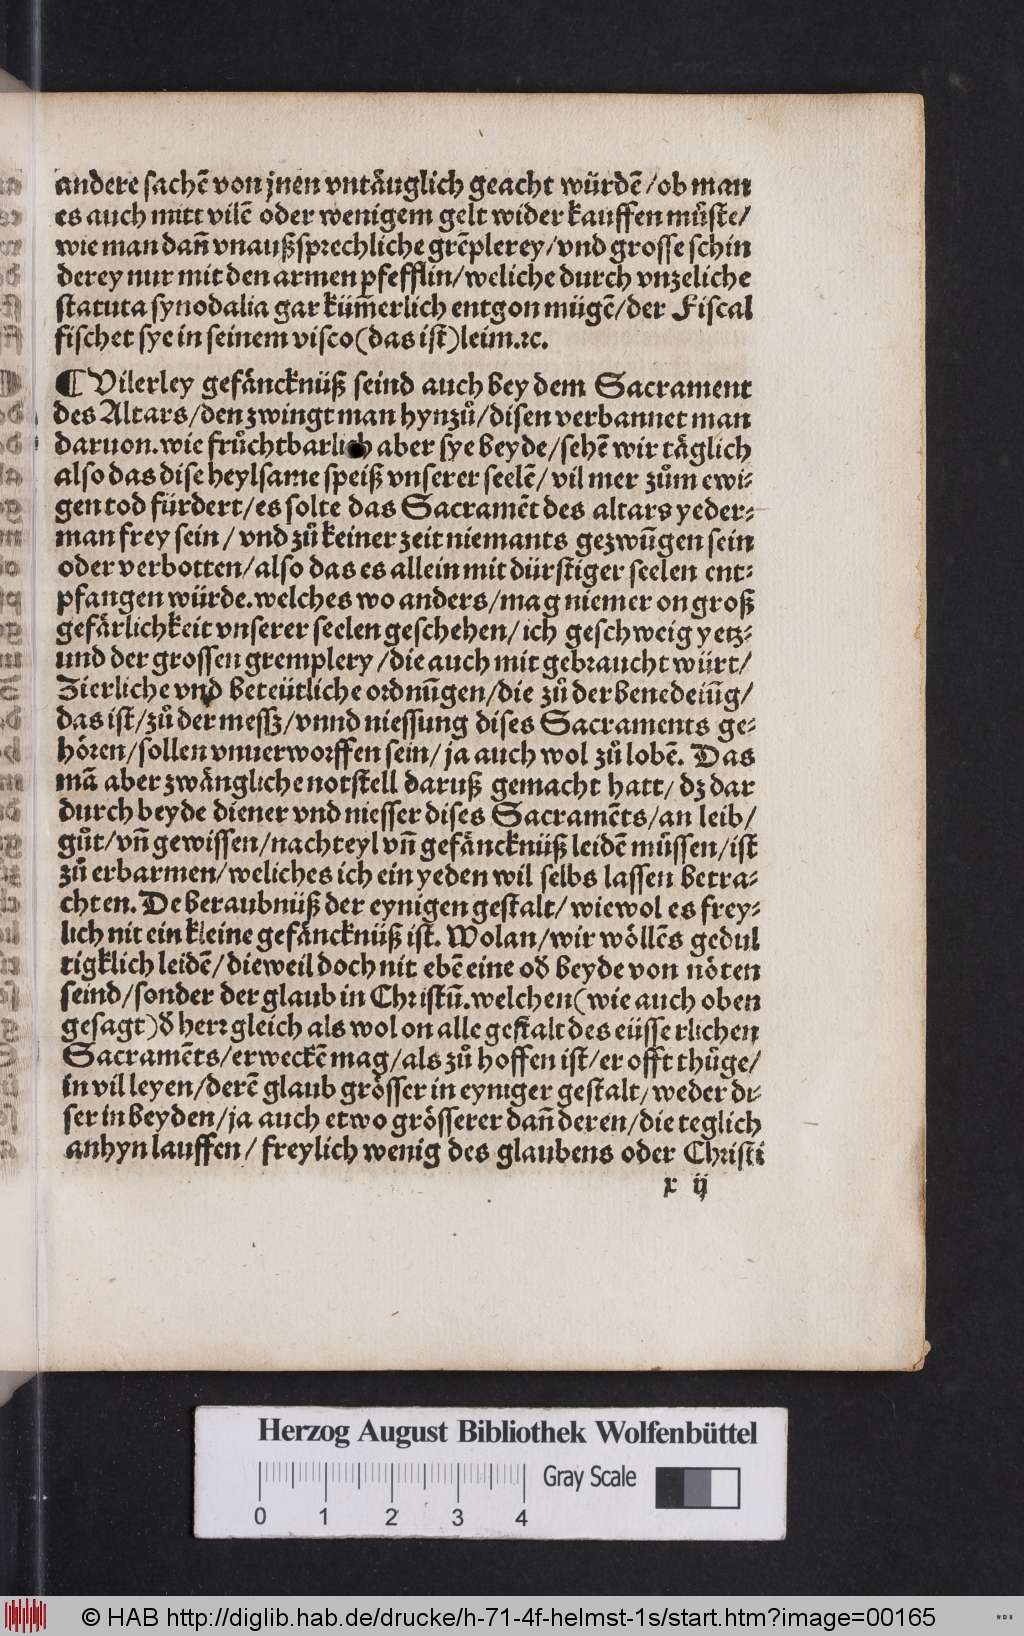 andere sachē von jnen vntäuglich geacht würdē/ob man
es auch mitt vilē oder wenigem gelt wider kauffen müste/
wie man dañ vnaußsprechliche grēplerey/vnd grosse schin
derey nur mit den armen pfefflin/weliche durch vnzeliche
statuta synodalia gar küm̄erlich entgon mügē/der Fiscal
fischet sye in seinem visco(das ist)leim.ꝛc.
¶ Vilerley gefäncknüß seind auch bey dem Sacrament
des Altars/den zwingt man hynzů/disen verbannet man
daruon.wie frůchtbarlich aber sye beyde/sehē wir täglich
also das dise heylsame speiß vnserer seelē/vil mer zům ewi⸗
gen tod fürdert/es solte das Sacramēt des altars yeder⸗
man frey sein/vnd zů keiner zeit niemants gezwūgen sein
oder verbotten/also das es allein mit dürstiger seelen ent⸗
pfangen würde.welches wo anders/mag niemer on groß
gefärlichkeit vnserer seelen geschehen/ich geschweig yetz⸗
und der grossen gremplery/die auch mit gebraucht würt/
Zierliche vnd beteütliche ordnūgen/die zů der benedeiūg/
das ist/zů der messz/vnnd niessung dises Sacraments ge⸗
hören/sollen vnuerworffen sein/ja auch wol zů lobē. Das
mā aber zwängliche notstell daruß gemacht hatt/dz dar
durch beyde diener vnd niesser dises Sacramēts/an leib/
gůt/vñ gewissen/nachteyl vñ gefäncknüß leidē müssen/ist
zů erbarmen/weliches ich ein yeden wil selbs lassen betra⸗
chten. De beraubnüß der eynigen gestalt/wiewol es frey⸗
lich nit ein kleine gefäncknüß ist. Wolan/wir wöllēs gedul
tigklich leidē/dieweil doch nit ebē eine od̓ beyde von nöten
seind/sonder der glaub in Christū.welchen(wie auch oben
gesagt)d̓ herr gleich als wol on alle gestalt des eüsserlichen
Sacramēts/erweckē mag/als zů hoffen ist/er offt thüge/
in vil leyen/derē glaub grösser in eyniger gestalt/weder di⸗
ser in beyden/ja auch etwo grösserer dañ deren/die teglich
anhyn lauffen/freylich wenig des glaubens oder Christi
x ij
Herzog August Bibliothek Wolfenbüttel
Gray Scale
0 1 2 3 4
© HAB http://diglib.hab.de/drucke/h-71-4f-helmst-1s/start.htm?image=00165